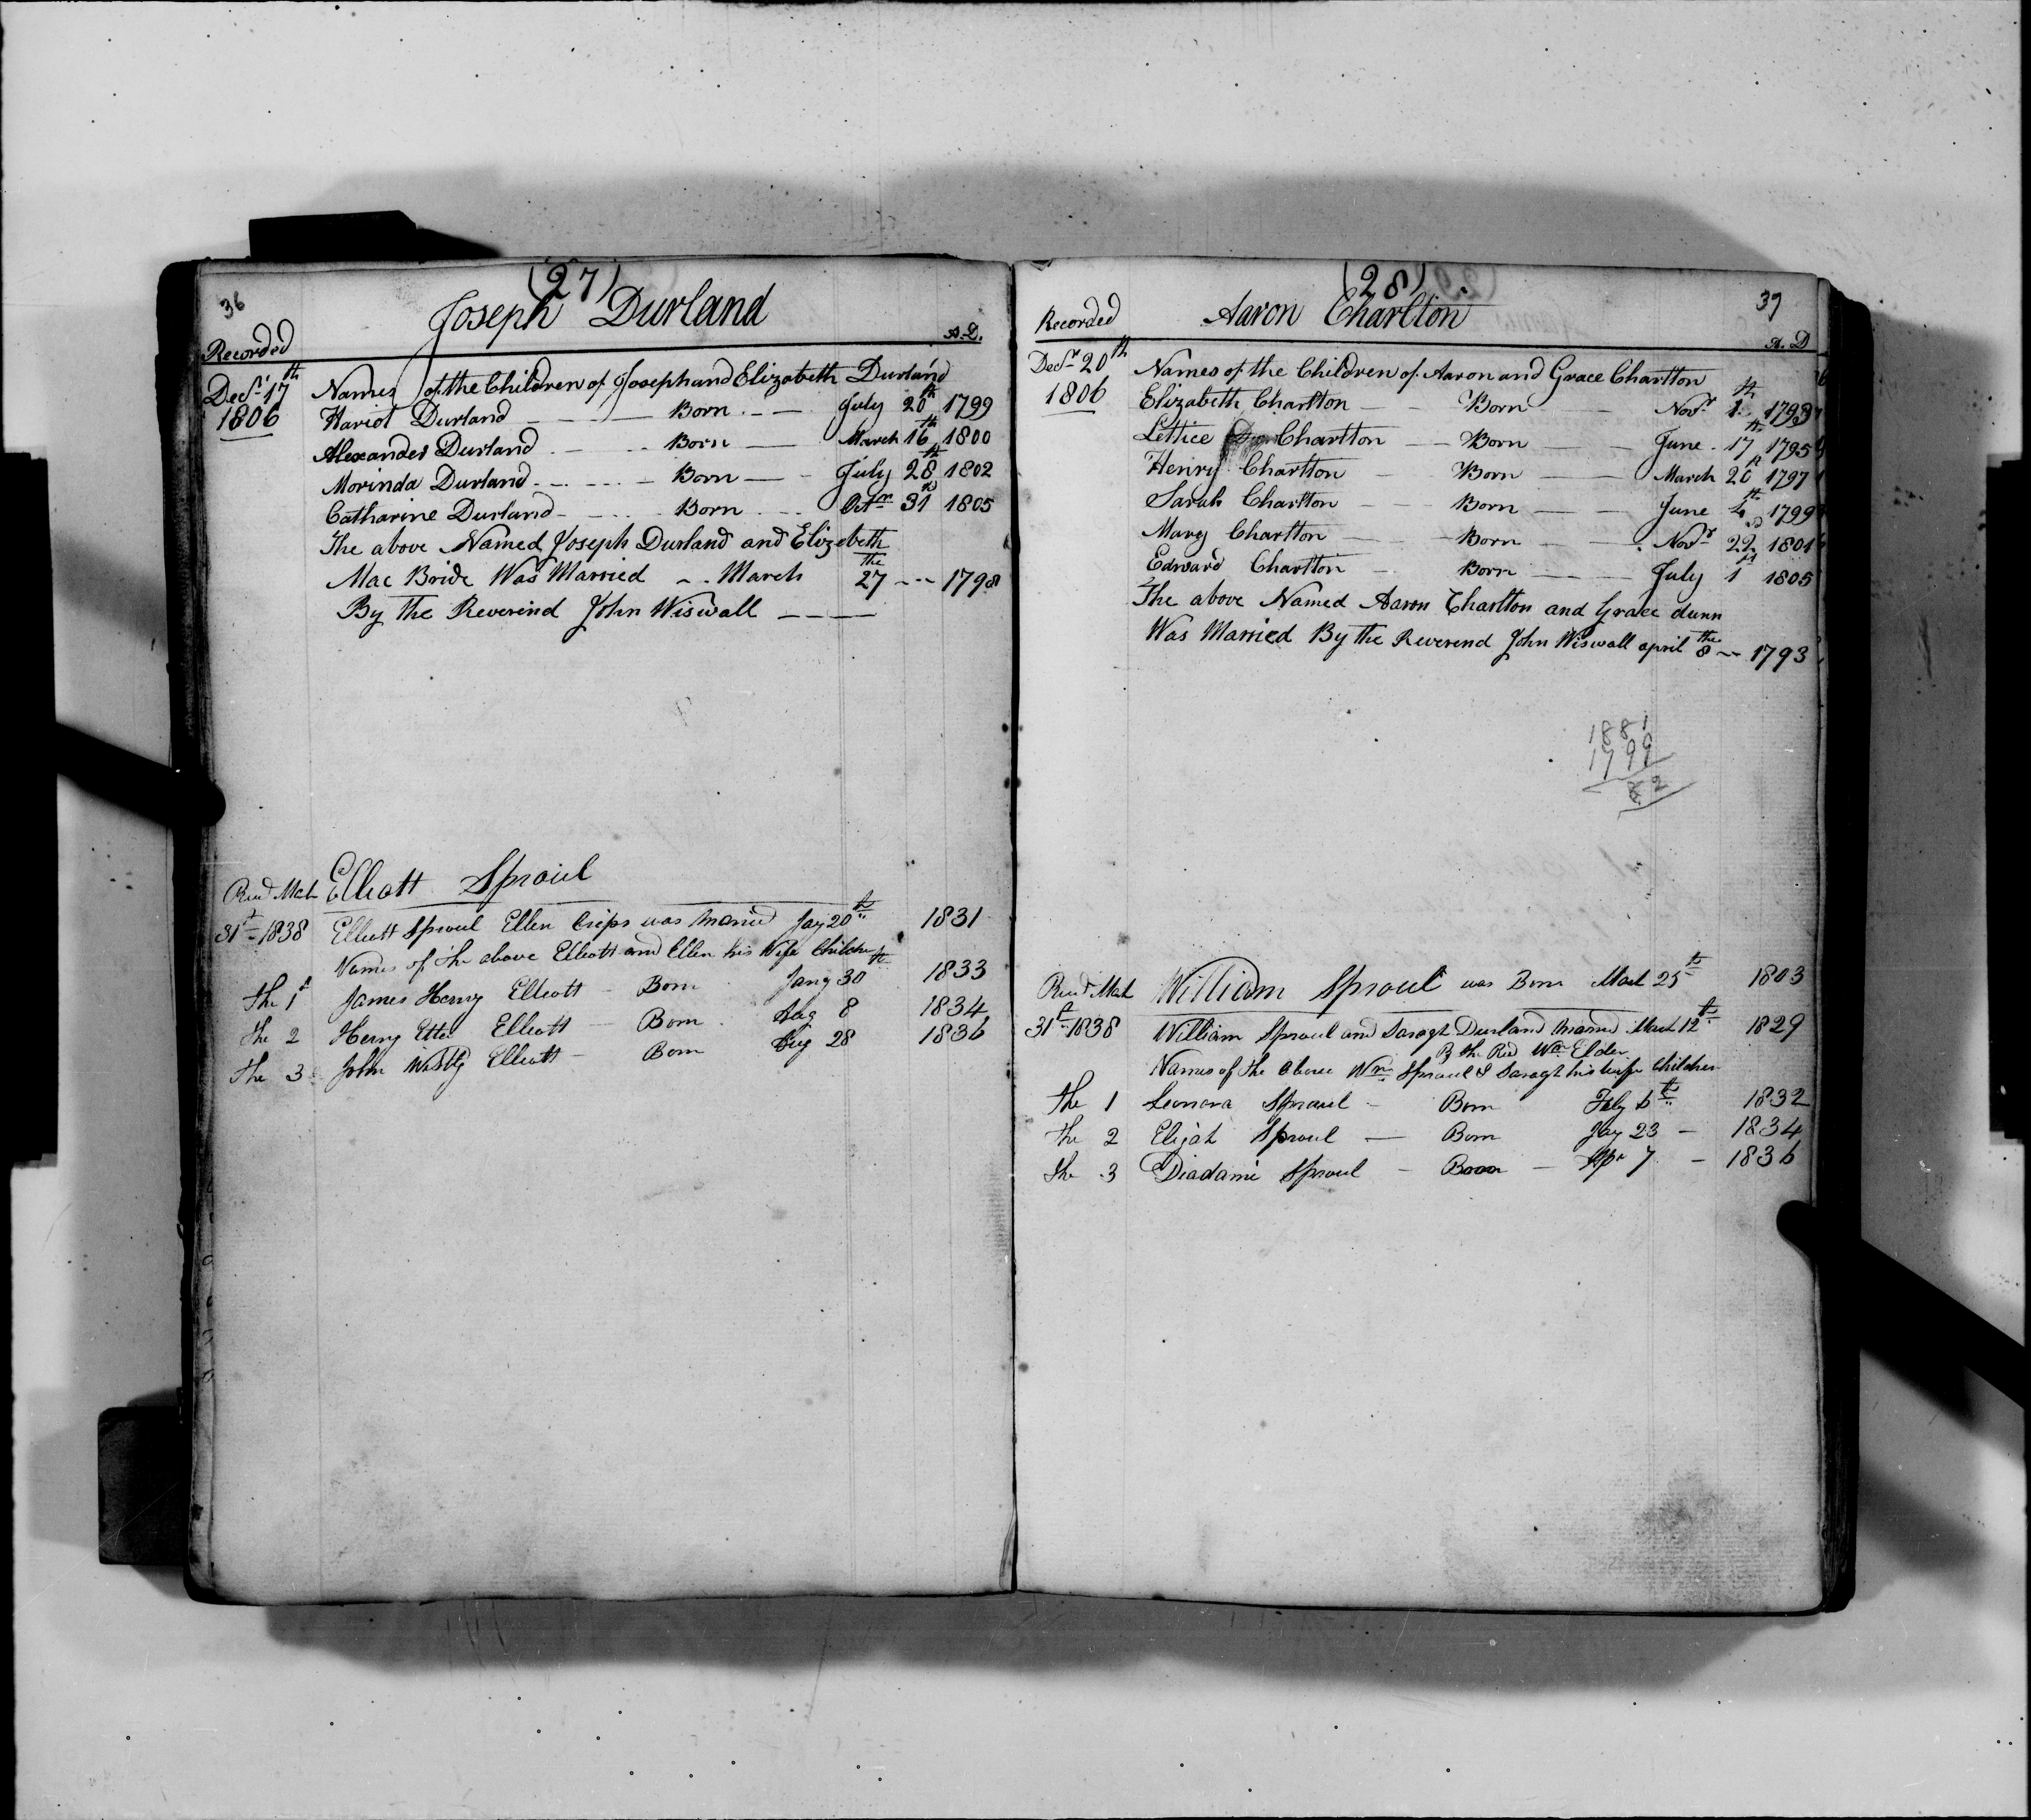 (27)
36
Joseph Durland
Recorded A.D.
Decr. 17th 1806
Names of the Children of Joseph and Elizabeth Durland
Hariot Durland Born July 20th 1799
Alexander Durland Born March 16th 1800
Morinda Durland Born July 28th 1802
Catharine Durland Born Octr 31st 1805
The above Named Joseph Durland and Elizebeth
Mac Bride Was Married March the 27 1798
By the Reverend John Wiswall
Elliott Sproul
31st 1838 Elliott Sproul Ellen Crips was Married Jay 20th 1831
Names of the above Elliott and Ellen his Wife Children
The 1st James Henry Elliott Born Jany 30th 1833
The 2 Henry Etter Elliott Born Aug 8 1834
The 3 John Elliott Born Aug 28 1836
(28)
39
Aaron Charlton
Recorded A.D
Decr. 20th 1806
Names of the Children of Aaron and Grace Charlton
Elizabeth Charlton Born Novr 1th 1793
Lettice Charlton Born June 17th 1795
Henry Charlton Born March 26 1797
Sarah Charlton Born June 4th 1799
Mary Charlton Born Novr 22nd 1801
Edward Charlton Born July 1st 1805
The above Named Aaron Charlton and Grace dunn
Was Married By the Reverend John Wiswall april the 8 1793
1881
1799
82
William Sproul was Born Mach 25th 1803
31st 1838 William Sproul and Saragh Durland married Mach 12th 1829
By the Rev Wm Elder
Names of the above Wm Sproul & Saragh his wife Children
The 1 Leonora Sproul Born Feby 6th 1832
The 2 Elijah Sproul Born Jay 23 1834
The 3 Diadami Sproul Born Apr 7 1836